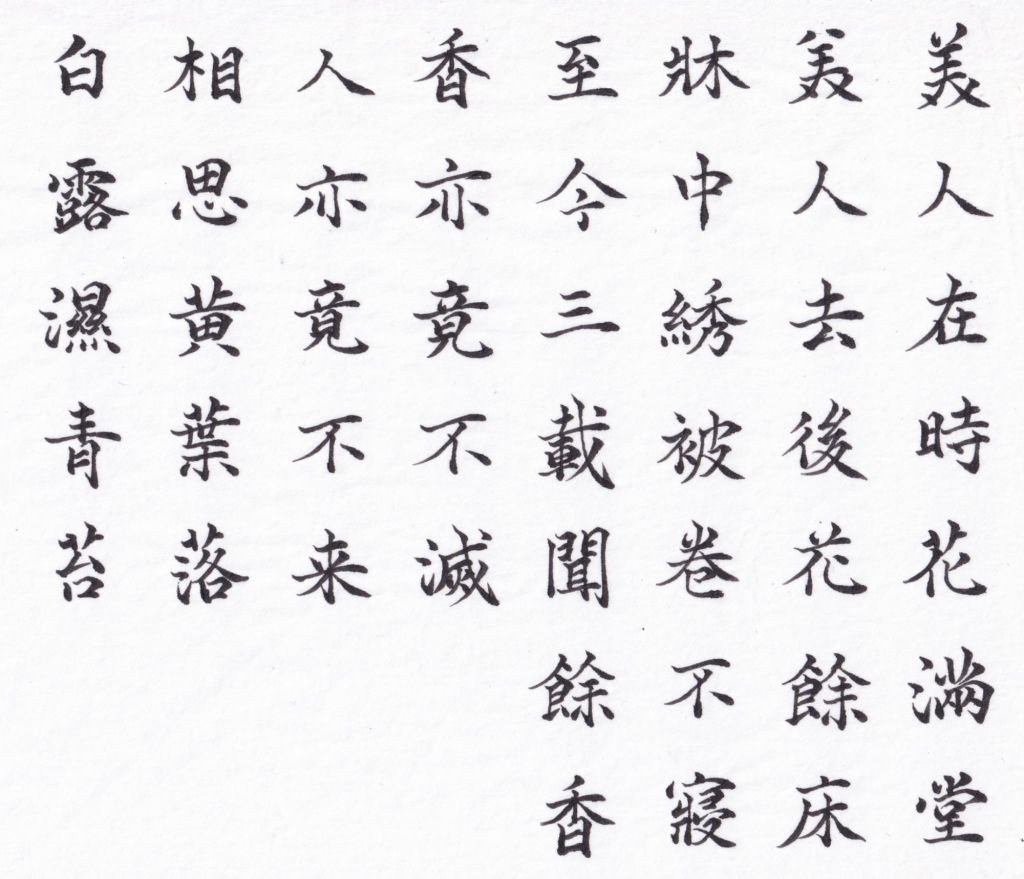 美人在時花滿堂
美人去後花餘床
牀中綉被卷不寢
至今三載聞餘香
香亦竟不滅
人亦竟不来
相思黄葉落
白露濕青苔